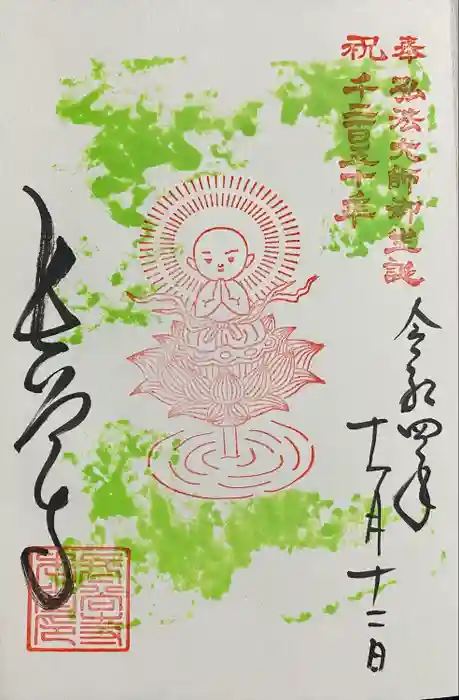 奉 弘法大師御生誕
祝 千二百五十年
令和四年
十一月十二日